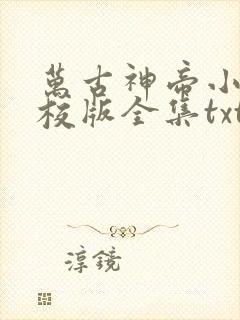 萬古神帝小
校版全集txt
淳鏡